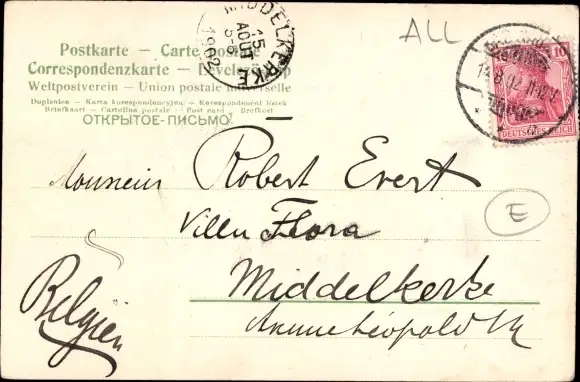 Postkarte – Carte postale
Correspondenzkarte – Levelező-lap
Weltpostverein – Union postale universelle
Dopisnice – Karta korespondencyjna – Korespondenční lístek
Briefkaart – Cartolina postale – Post card – Brefkort
ОТКРЫТОЕ-ПИСЬМО
MIDDELKERKE
15
AOUT
1902
ALL
10
DEUTSCHES REICH
Monsieur Robert Evert
Villa Flora
E
Middelkerke
Avenue Léopold
Belgien